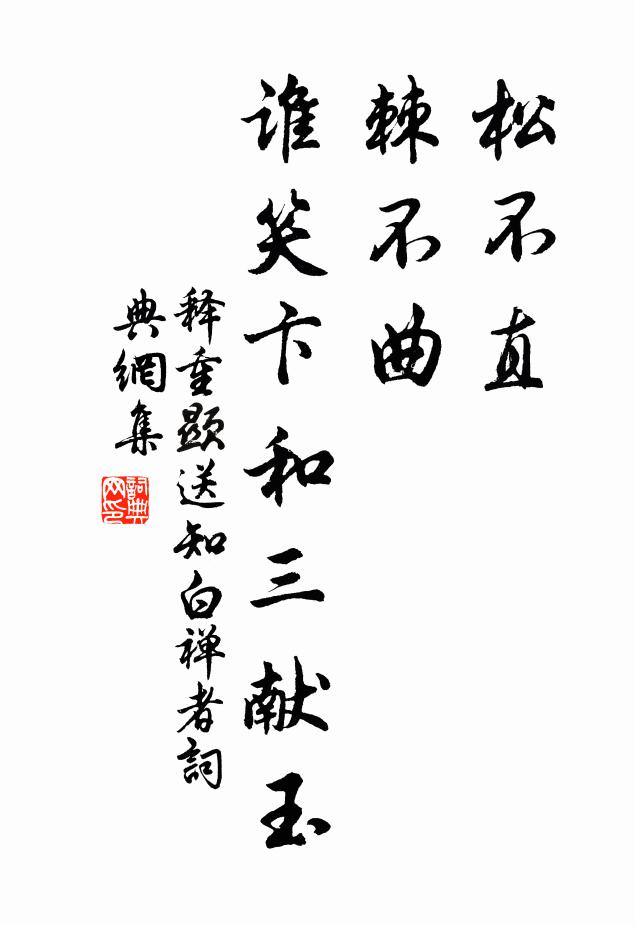 松不直
棘不曲
谁笑卞和三献玉
释重顯送知白禅者詞
典網集
詞典
网印